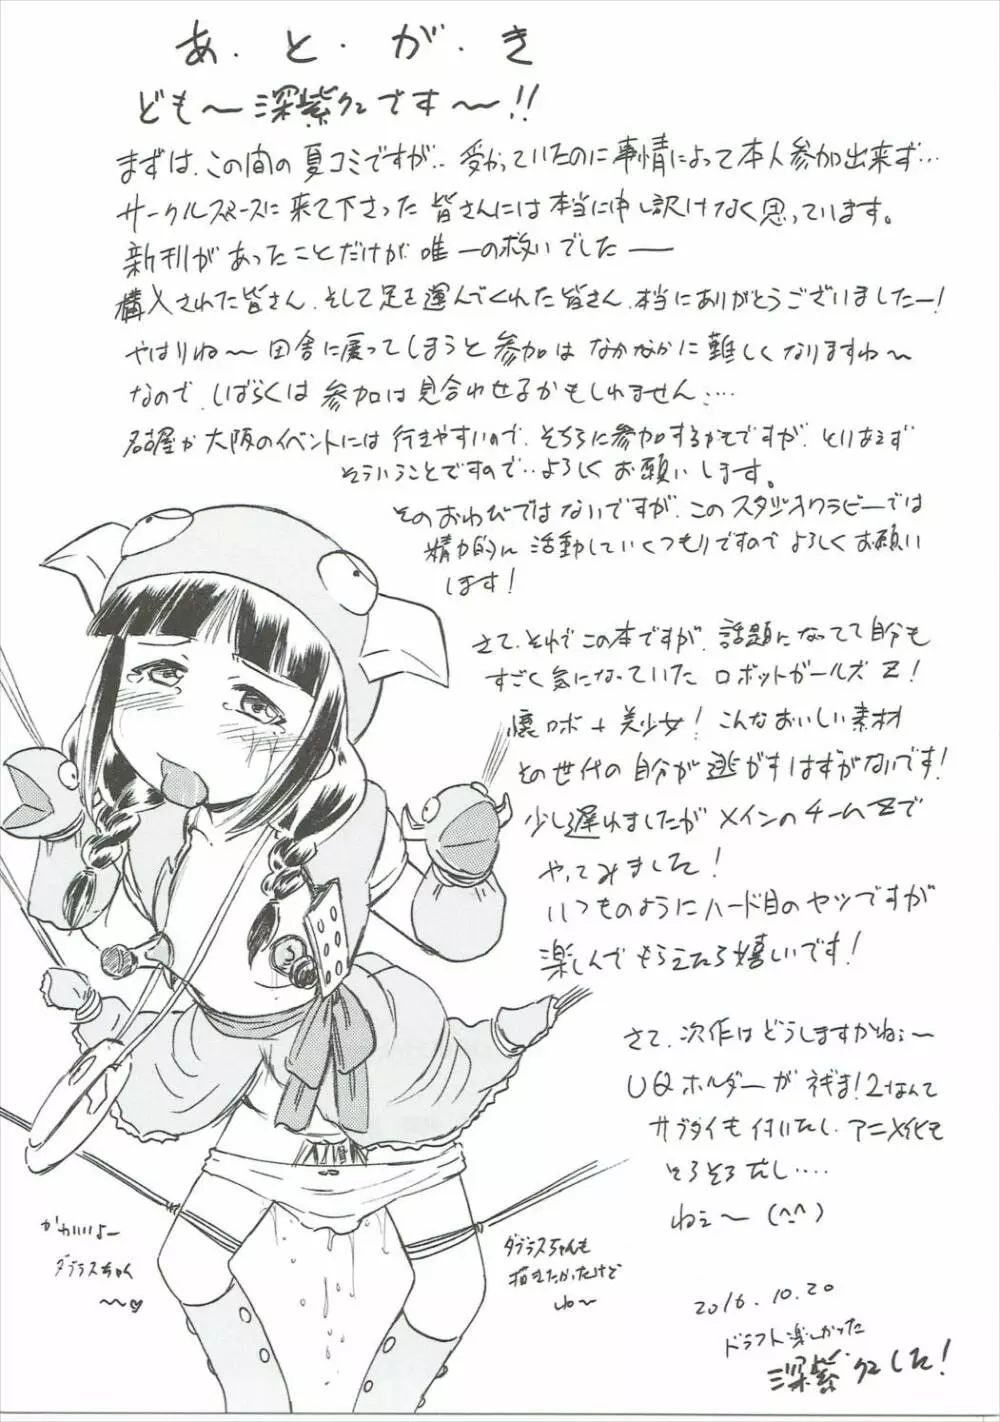 あ・と・が・き
ども〜深紫クニです〜!!
まずは、この間の夏コミですが… 受かっていたのに事情によって本人参加出来ず…
サークルスペースに来て下さった皆さんには本当に申し訳けなく思っています。
新刊があったことだけが唯一の救いでした――
購入された皆さん、そして足を運んでくれた皆さん、本当にありがとうございましたー!
やはりね〜 田舎に戻ってしまうと参加はなかなかに難しくなりますね〜
なので、しばらくは参加は見合わせるかもしれません……
名古屋か大阪のイベントには行きやすいので、そちらに参加するかもですが、とりあえず
そういうことですので…よろしくお願いします。
そのおわびではないですが、このスタジオワラビーでは
精力的に活動していくつもりですのでよろしくお願い
します!
さて、それでこの本ですが、話題になってて自分も
すごく気になっていたロボットガールズZ!
懐ロボ+美少女! こんなおいしい素材
その世代の自分が逃がすはずがないです!
少し遅れましたがメインのチームZで
やってみました!
いつものようにハード目のヤツですが
楽しんでもらえたら嬉しいです!
さて、次作はどうしますかねぇ〜
UQホルダーがネギま!2なんて
サブタイも付いたし、アニメ化も
そろそろだし……
ねぇ〜 (^^)
かわいいよー
ダブラスちゃん
〜〜♡
ダブラスちゃんも
描きたかったけど
ね〜
2016.10.20
ドラフト楽しかった
深紫クニでした!